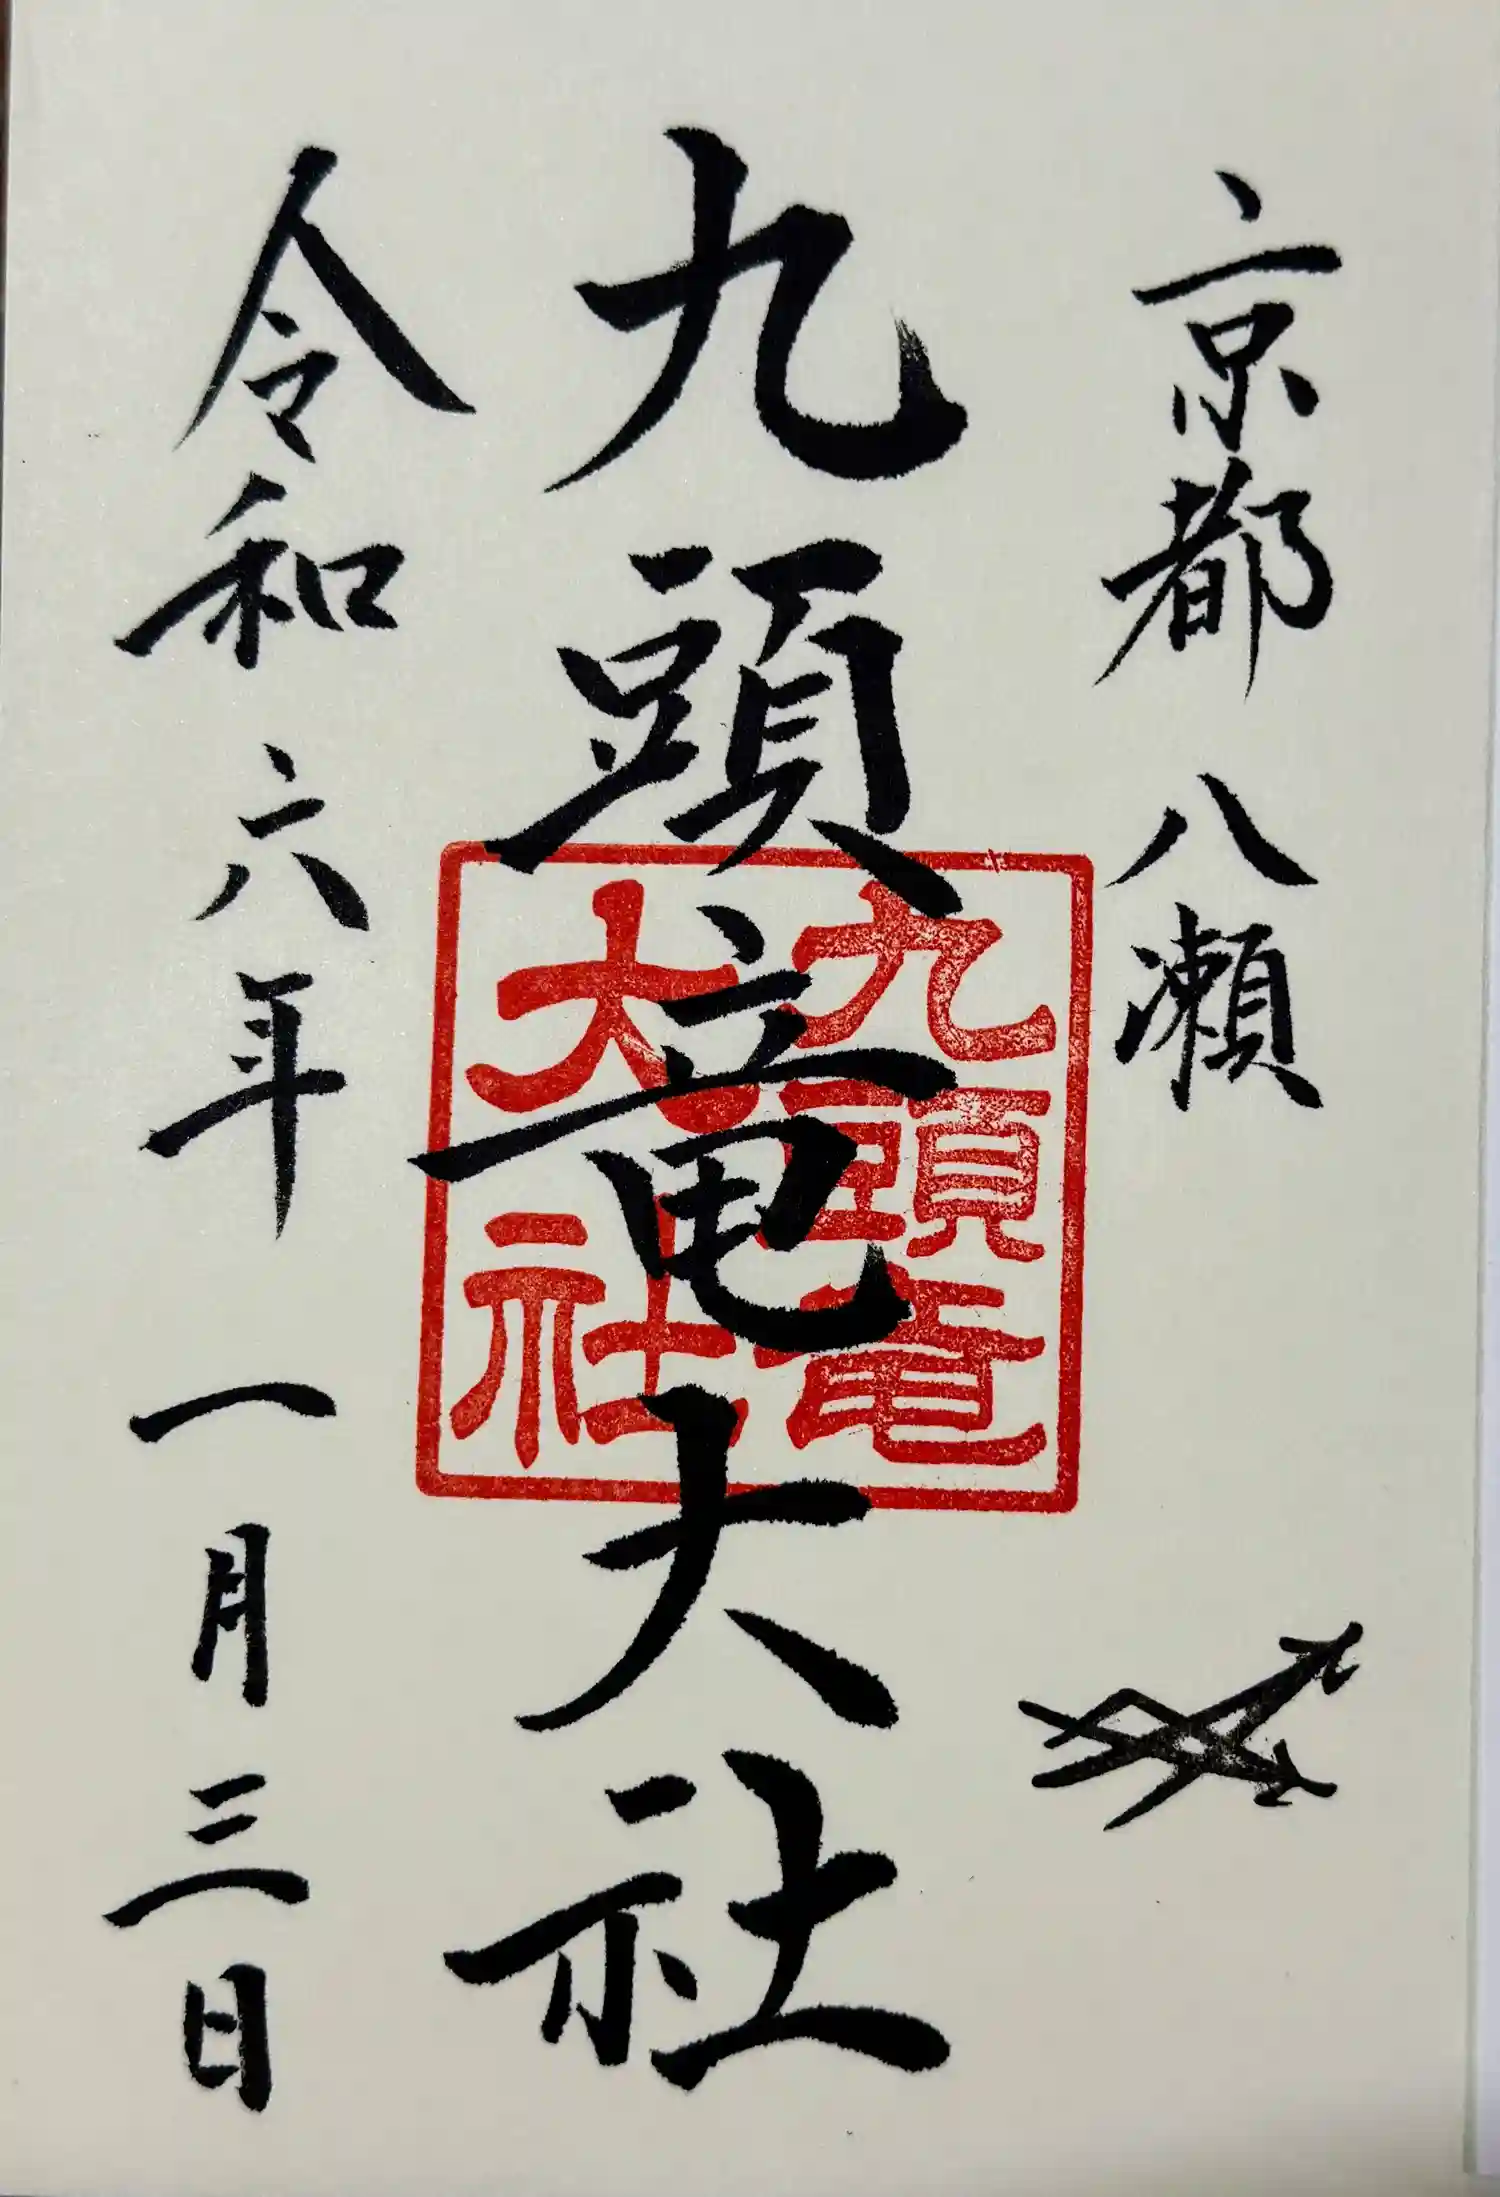 京都八瀬
九頭竜大社
九頭竜
大社
令和六年一月三日